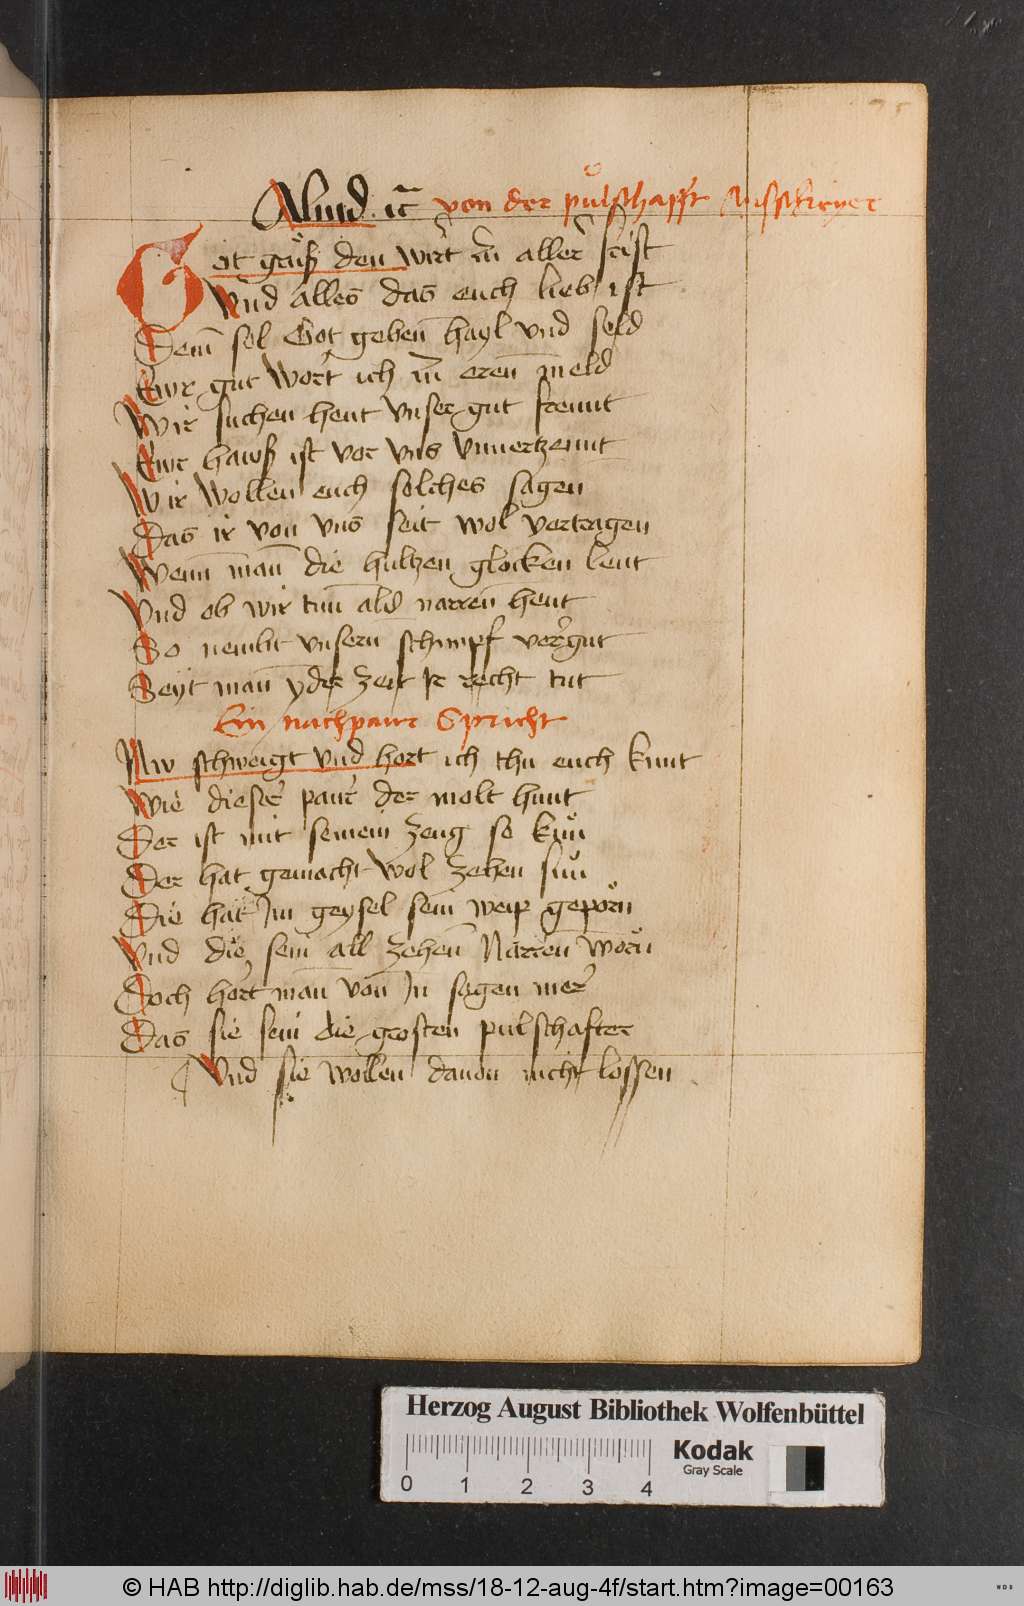 75
Aliud ic von der pulschafft Ausschreyer
Got gruß den wirt in aller frist
Und alles das euch lieb ist
Dem sol Got geben hayl vnd seld
Ewr gut Wort ich in eren meld
Wir suchen heut Vnser gut freunt
Ewr hawß ist vor vns Vnuertzeunt
Wir Wollen euch solches sagen
Das ir von vns seit wol vertragen
Wenn man die hultzen glocken leut
Vnd ob wir tun als narren heut
So nembt vnsern schimpf vergut
Seyt man yder zeit ir recht tut
Ein nachpaur Spricht
Nw schweigt vnd hort ich thu euch kunt
Wie dieser paur der molt hunt
Der ist mit seinem zeug so kün
Der hat gemacht wol zehen sün
Die hat Im geysel sein weip geporn
Vnd die sein all zehen Narren worn
Doch hort man von In sagen mer
Das sie sein die grosten pulschafter
Vnd sie wollen dauon nicht lossen
Herzog August Bibliothek Wolfenbüttel
Kodak
Gray Scale
0 1 2 3 4
© HAB http://diglib.hab.de/mss/18-12-aug-4f/start.htm?image=00163